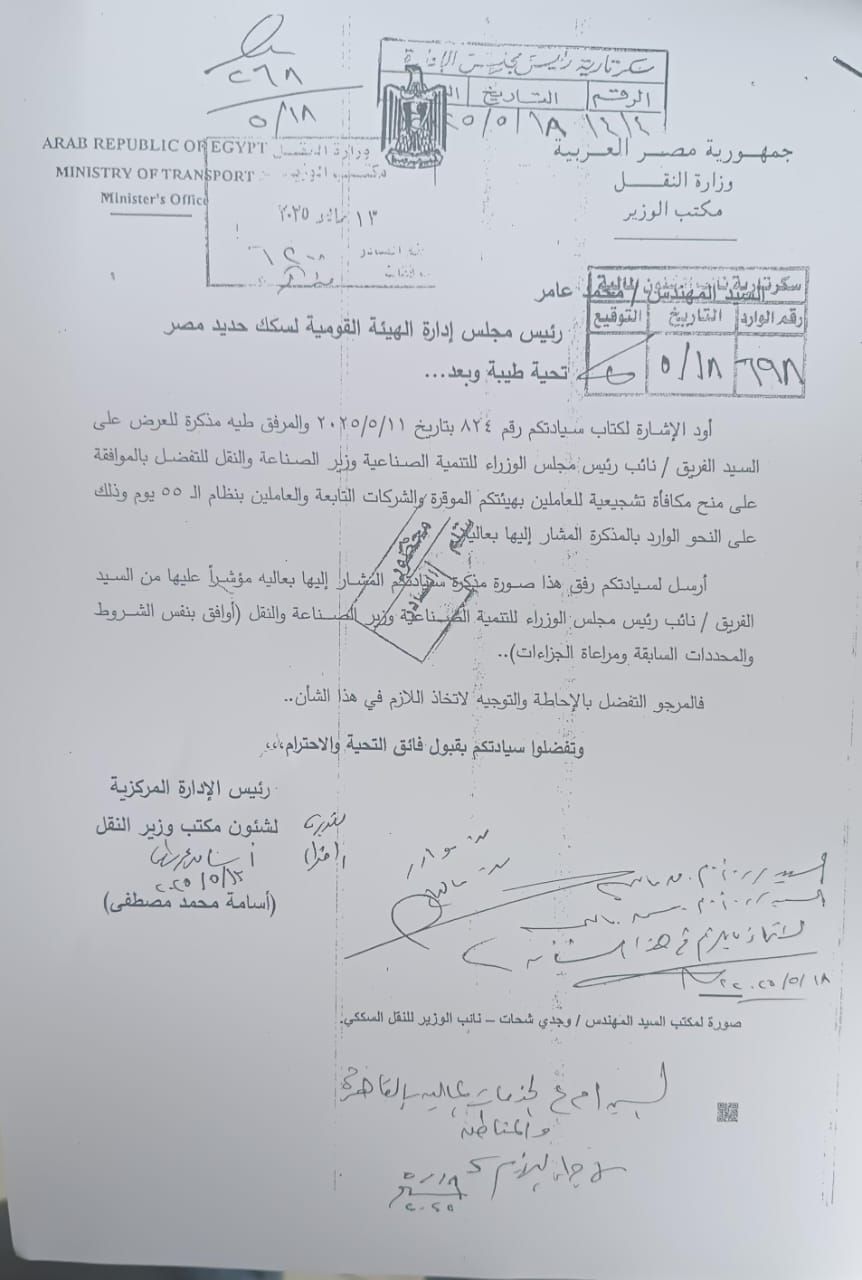 سكرتارية رئيس مجلس الإدارة
الرقم التاريخ
١٤١٤ ٢٠٢٥/٥/١٨
٢٦٨
٥/١٨
ARAB REPUBLIC OF EGYPT
MINISTRY OF TRANSPORT
Minister's Office
وزارة النقل
١٣ مايو ٢٠٢٥
جمهورية مصر العربية
وزارة النقل
مكتب الوزير
سكرتارية نائب شئون مالية
رقم الوارد التاريخ التوقيع
٦٩٨ ٥/١٨
السيد المهندس / محمد عامر
رئيس مجلس إدارة الهيئة القومية لسكك حديد مصر
تحية طيبة وبعد...
أود الإشارة لكتاب سيادتكم رقم ٨٢٤ بتاريخ ٢٠٢٥/٥/١١ والمرفق طيه مذكرة للعرض على
السيد الفريق / نائب رئيس مجلس الوزراء للتنمية الصناعية وزير الصناعة والنقل للتفضل بالموافقة
على منح مكافأة تشجيعية للعاملين بهيئتكم الموقرة والشركات التابعة والعاملين بنظام الـ ٥٥ يوم وذلك
على النحو الوارد بالمذكرة المشار إليها بعاليه
أرسل لسيادتكم رفق هذا صورة مذكرة سيادتكم المشار إليها بعاليه مؤشراً عليها من السيد
الفريق / نائب رئيس مجلس الوزراء للتنمية الصناعية وزير الصناعة والنقل (أوافق بنفس الشروط
والمحددات السابقة ومراعاة الجزاءات)..
فالمرجو التفضل بالإحاطة والتوجيه لاتخاذ اللازم في هذا الشأن..
وتفضلوا سيادتكم بقبول فائق التحية والاحترام،،،
رئيس الإدارة المركزية
لشئون مكتب وزير النقل
٢٠٢٥/٥/١٣
(أسامة محمد مصطفى)
٢٠٢٥/٥/١٨
صورة لمكتب السيد المهندس / وجدي شحات – نائب الوزير للنقل السككي.
السيد / م ع الخدمات المالية بالقاهرة
والمناطق
٥/١٨
٢٠٢٥